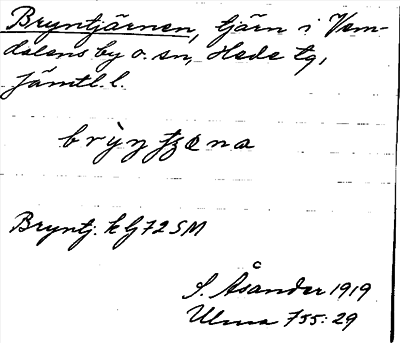 Bryntjärnen, tjärn i Vem-
dalens by o. sn, Hede tg,
Jämtl. l.
Bryntj. k G 72 SM
S. Åsander 1919
Ulma 755:29